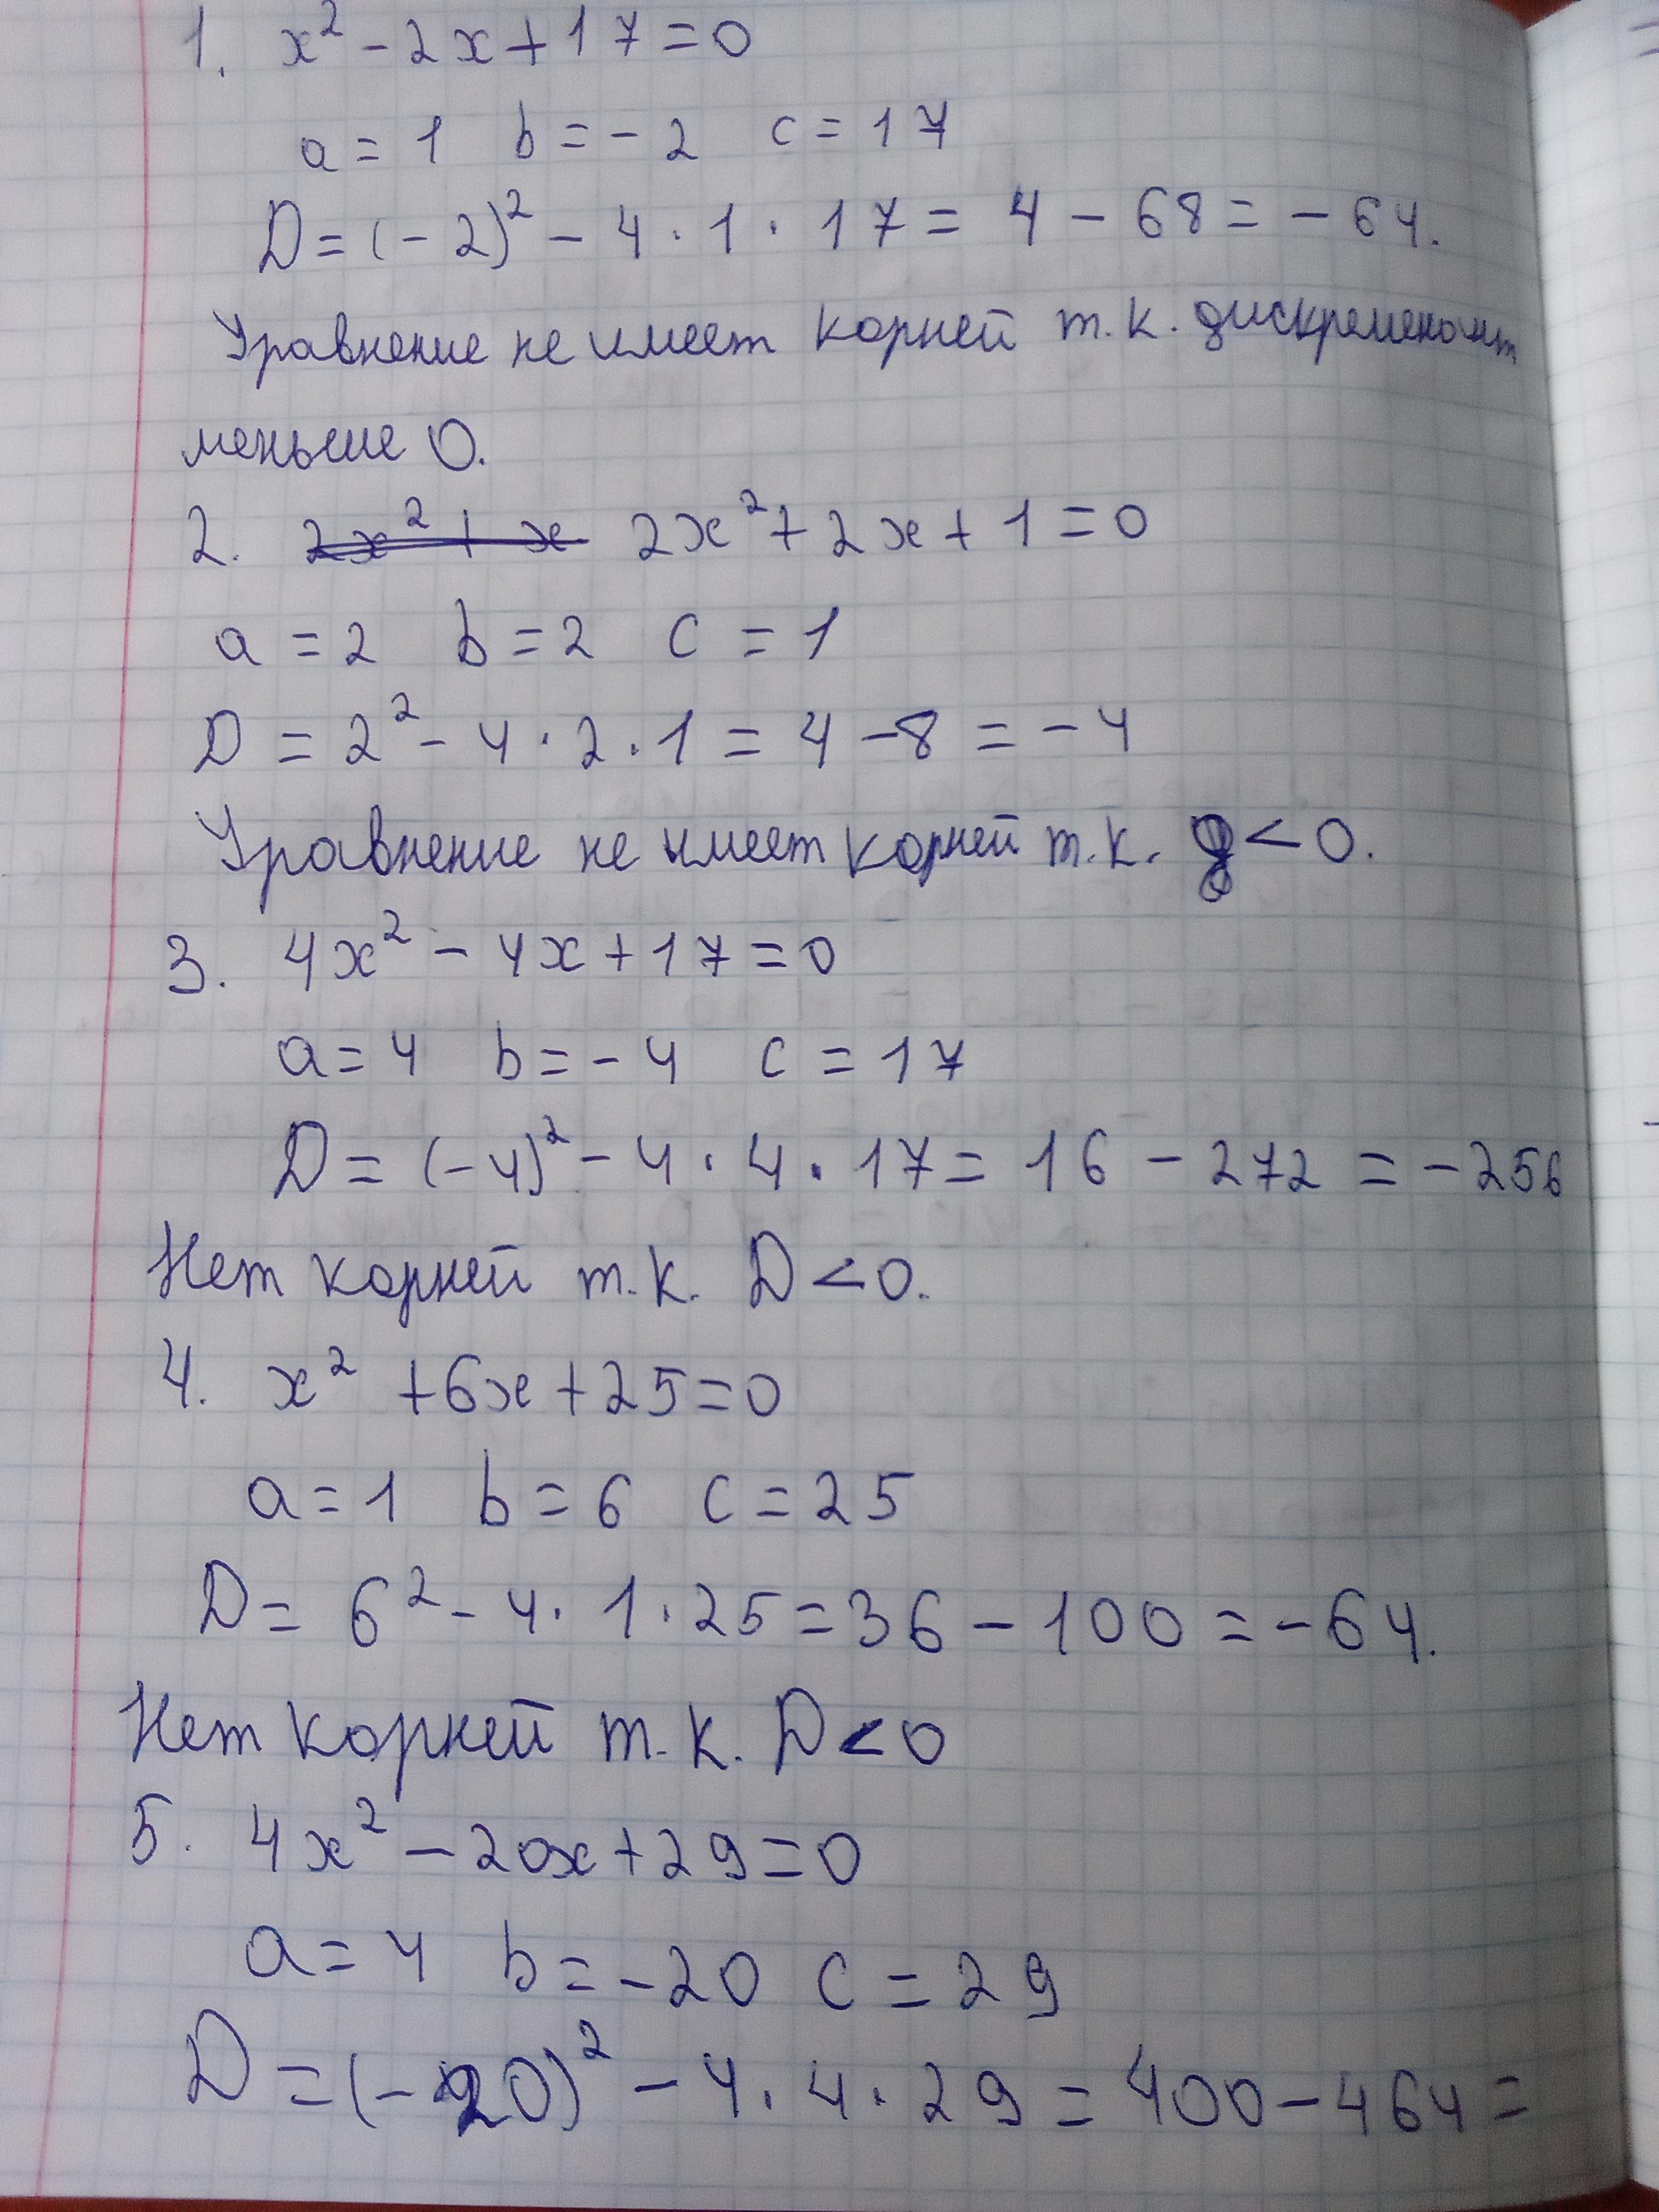 1. x² - 2x + 17 = 0
a = 1 b = - 2 c = 17
D = (- 2)² - 4 · 1 · 17 = 4 - 68 = - 64.
Уравнение не имеет корней т.к. дискременант
меньше 0.
2. 2x² + x 2x² + 2x + 1 = 0
a = 2 b = 2 c = 1
D = 2² - 4 · 2 · 1 = 4 - 8 = - 4
Уравнение не имеет корней т.к. д < 0.
3. 4x² - 4x + 17 = 0
a = 4 b = - 4 c = 17
D = (-4)² - 4 · 4 · 17 = 16 - 272 = - 256
Нет корней т.к. D < 0.
4. x² + 6x + 25 = 0
a = 1 b = 6 c = 25
D = 6² - 4 · 1 · 25 = 36 - 100 = - 64.
Нет корней т.к. D < 0
5. 4x² - 20x + 29 = 0
a = 4 b = - 20 c = 29
D = (- 20)² - 4 · 4 · 29 = 400 - 464 =